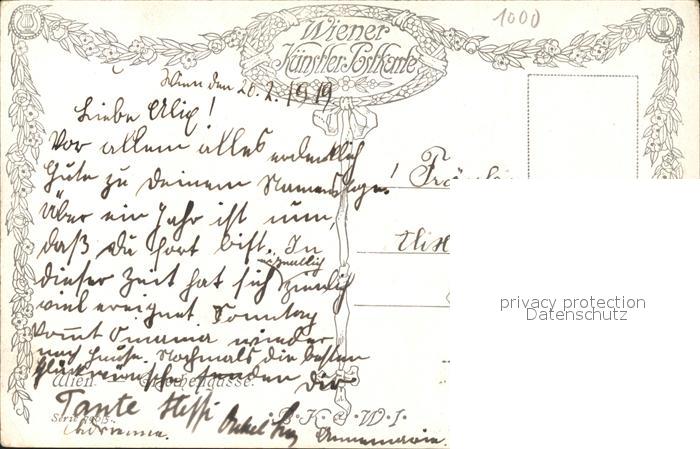 1000
Wiener
Künstler-Postkarte
Wien den 20.2.1919
Liebe
Vor allem alles erdenklich
Gute zu Deinem Namenstage!
Über ein Jahr ist nun,
daß du fort bist. In
dieser Zeit hat sich ziemlich
viel ereignet. Sonntag
kommt Omama wieder
nach Hause. Nochmals die besten
Glückwünsche senden Dir
Wien.
Tante Steffi Onkel Annemarie.
Serie
B.K.W.I.
Fräulein
privacy protection
Datenschutz